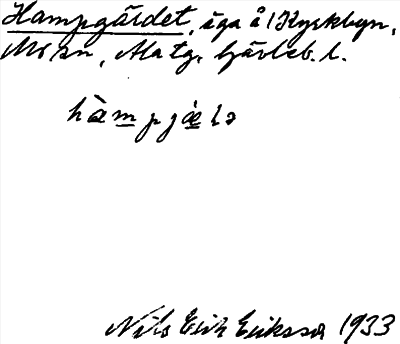 Hampgärdet, äga å /Kyrkbyn,
Mo sn, Ma tg, Gävleb. l.
hàmpjæ̀lə
Nils Erik Eriksson 1933